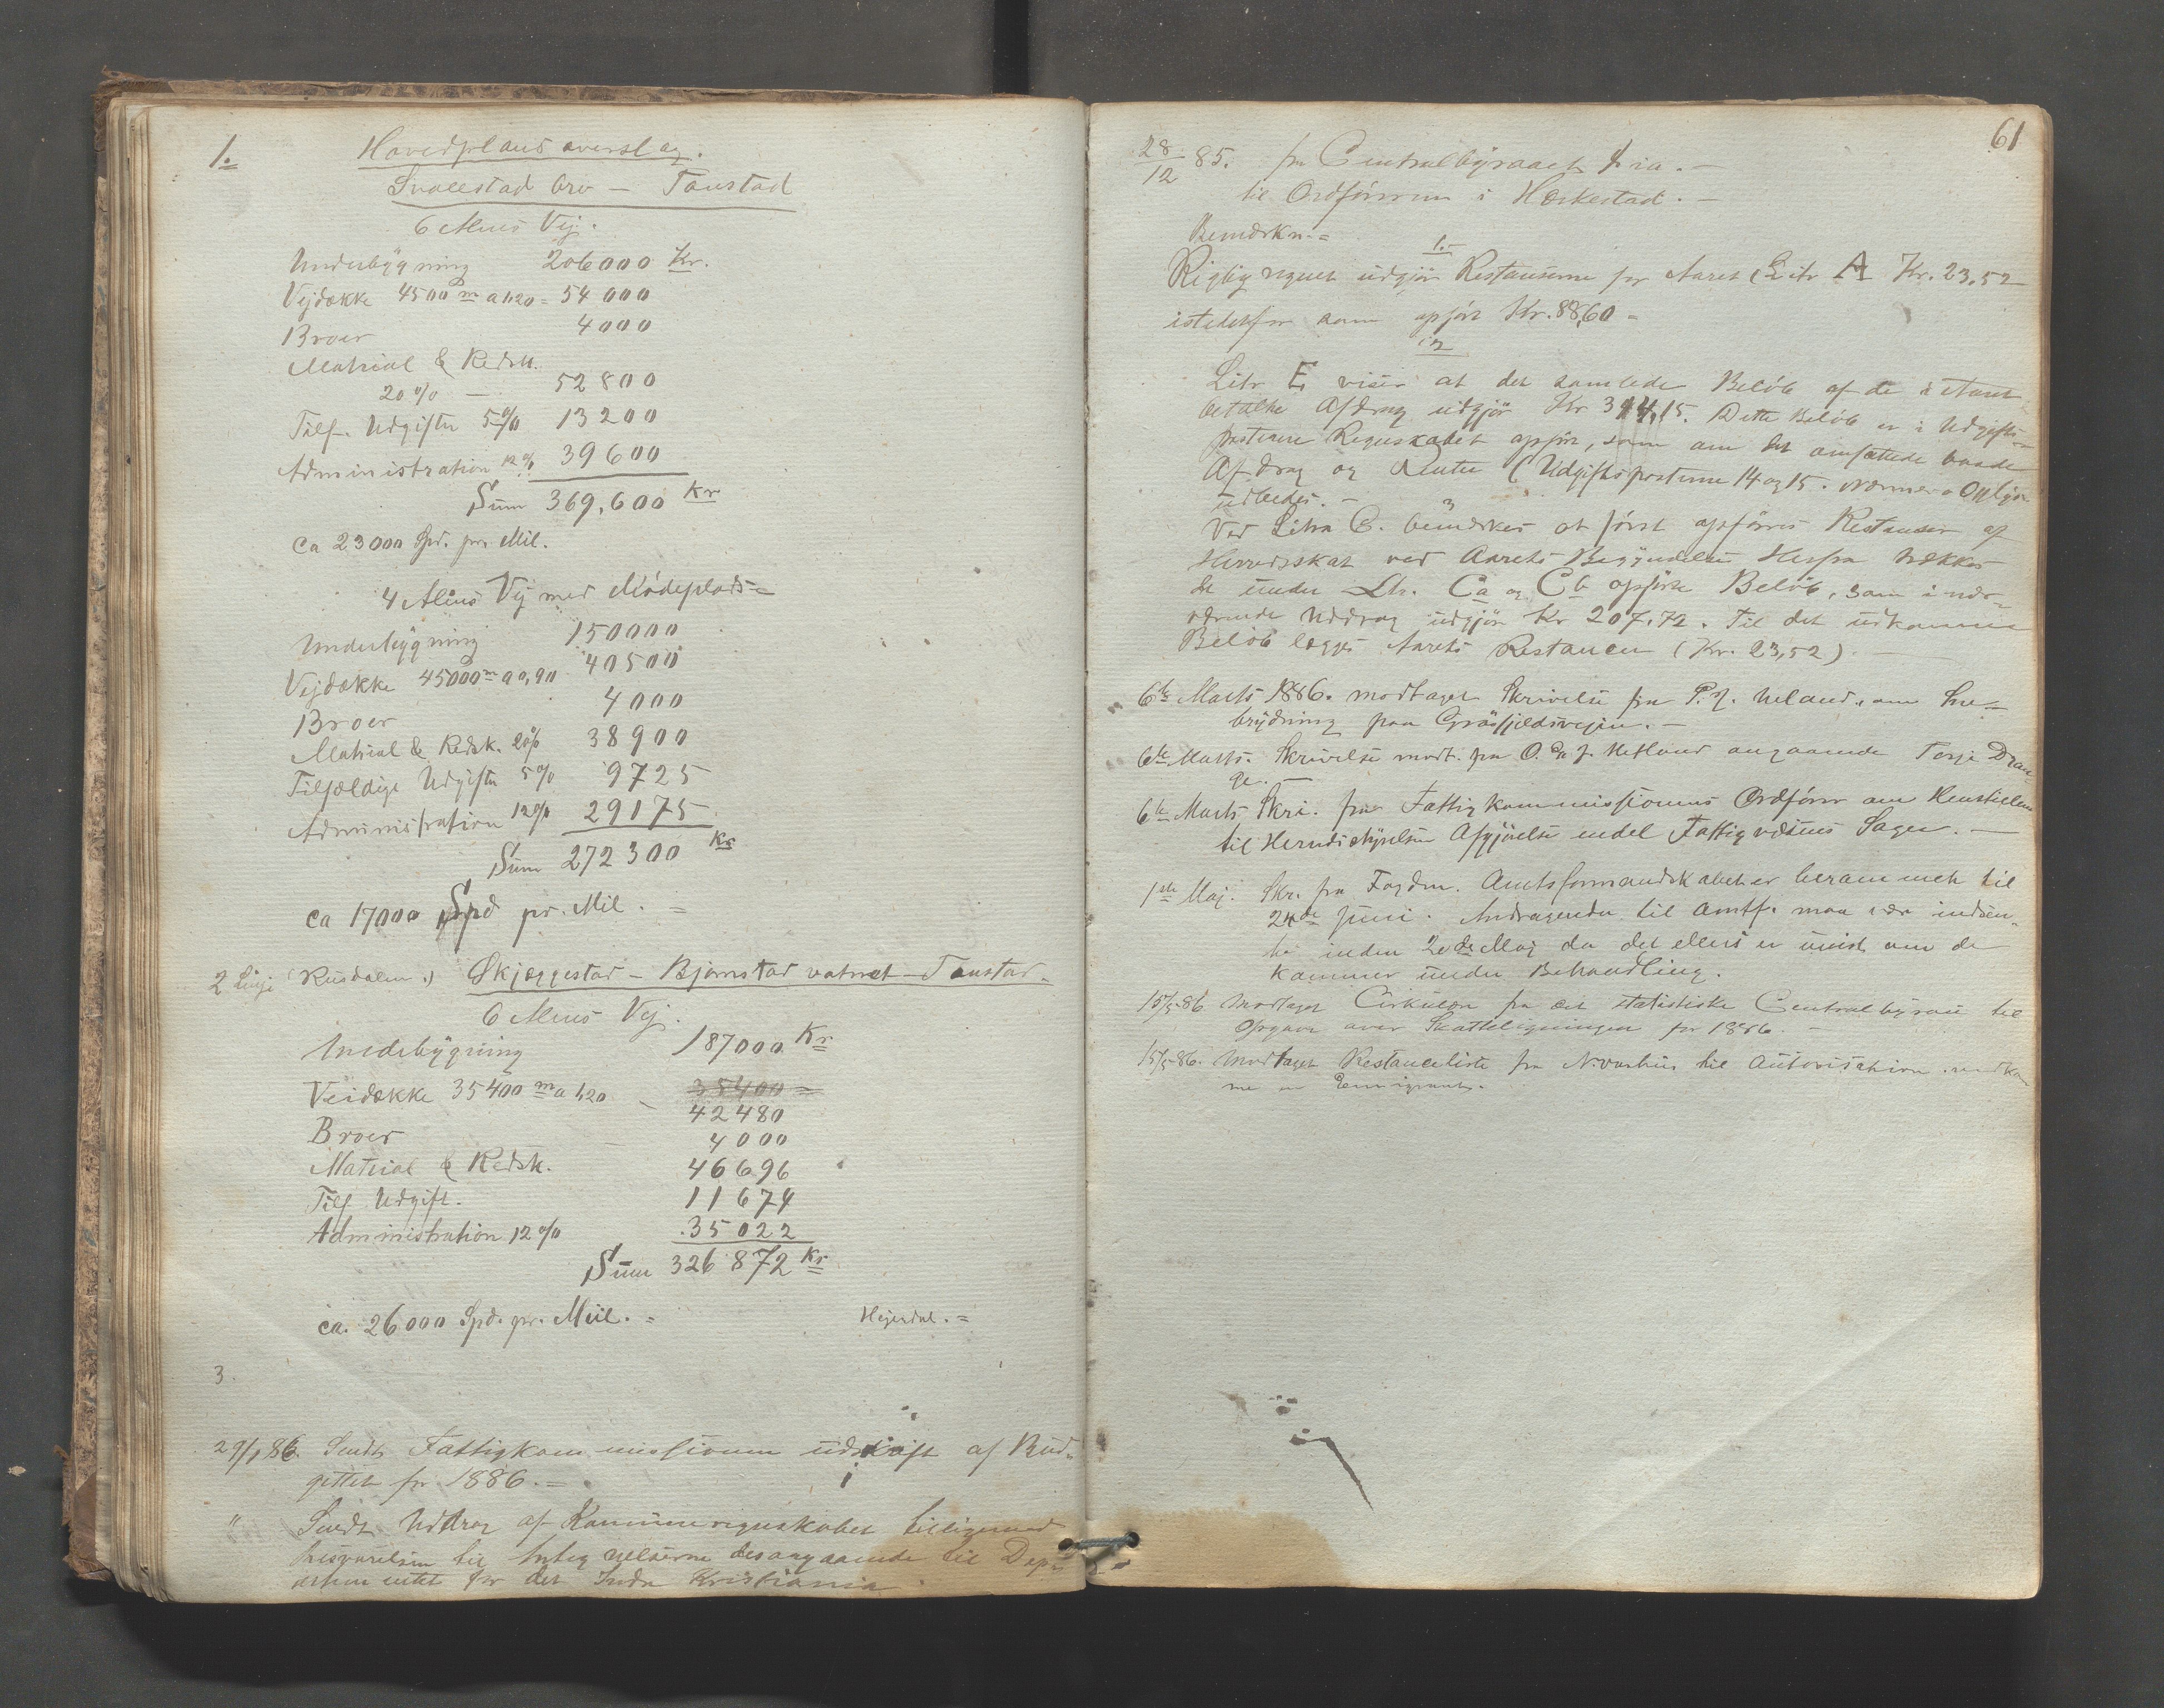 1. Hovedplans overslag.
Svalestad bro — Tonstad
6 Alens Vej.
Underbygning 206000 Kr.
Vejdække 4500 m a 1,20 = 54000
Broer 4000
Matrial & Redsk.
20% — 52800
Tilf. Udgifter 5% 13200
Administration 12% 39600
Sum 369,600 Kr
Ca 23000 Spd. pr. Mil.
4 Alens Vej med Mödeplads =
Underbygning 150000
Vejdække 45000 m a 0,90 40500
Broer 4000
Matrial & Redsk. 20% 38900
Tilfældige Udgifter 5% 9725
Administration 12% 29175
Sum 272300 Kr
ca 17000 Spd pr. Mil. =
2 Linje (Rusdalen.) Skjeggestad — Bjørnstad vatnet — Tonstad.
6 Alens Vej.
Underbygning 187000 Kr
Veidække 35400 m a 1,20 — 35400 =
42480
Broer — 4000
Matrial & Redsk. 46696
Tilf Udgift. 11674
Administration 12% 35022
Sum 326872 Kr
ca. 26000 Spd. pr. Miil. = Hejerdal. =
3.
29/1 86. Sendt Fattigkommissionen udskrift af Bud-
gettet for 1886. —
" Sendt Uddrag af Kommuneregnskabet tilligemed
besvarelsen til Antegnelserne desangaaende til Depar
tementet for det Indre Kristiania.
61
28/12 85. fra Centralbyraaet Kria. —
til Ordföreren i Heskestad. —
Bemærkn. =
1. —
Rigtig regnet udgjör Restanserne for Aaret (Litr A Kr. 23,52
istedetfor som opfört Kr. 88,60 =
2
Litr E viser at det samlede Belöb af de i Aaret
betalte Afdrag udgjör Kr 314,15. Dette Belöb er i Udgifts-
posterne Regnskabet opfört, som om det omfattede baade
Afdrag og Renter (Udgiftsposterne 14 og 15. Nærmere Oplysn
udbedes. —
3
Ved Litra C. bemærkes at först opföres Restanser af
Herredsskat ved Aarets Begyndelse Herfra trækkes
de under Ltr. Ca og Cb opförte Belöb, som i nær-
værende Uddrag udgjör Kr 207,72. Til det udkomne
Belöb lægges Aarets Restancer (Kr. 23,52). —
6te Marts 1886. modtaget Skrivelse fra P. J. Ueland, om Sne-
brydning paa Gråsfjeldsvejen. —
6te Marts. Skrivelse modt. fra O. Hetland angaaende Terje Dran-
ge. —
6te Marts Skri. fra Fattigkommissionens Ordförer om Henstillen
til Herredsstyrelsen Afgjörelse endel Fattigvæsens Sager. —
1ste Maj. Skr. fra Fogden. Amtsformandskabet er berammet til
24de Juni. Andragender til Amtf. maa være indsen-
te inden 20de Maj da det ellers er uvist om de
kommer under Behandling.
10/5-86 Modtaget Cirkulære fra det statistiske Centralbyrau til
Opgave over Skatteligningen for 1886. —
15/5-86. Modtaget Restanceliste fra N. til Autorisation
Emigranter.